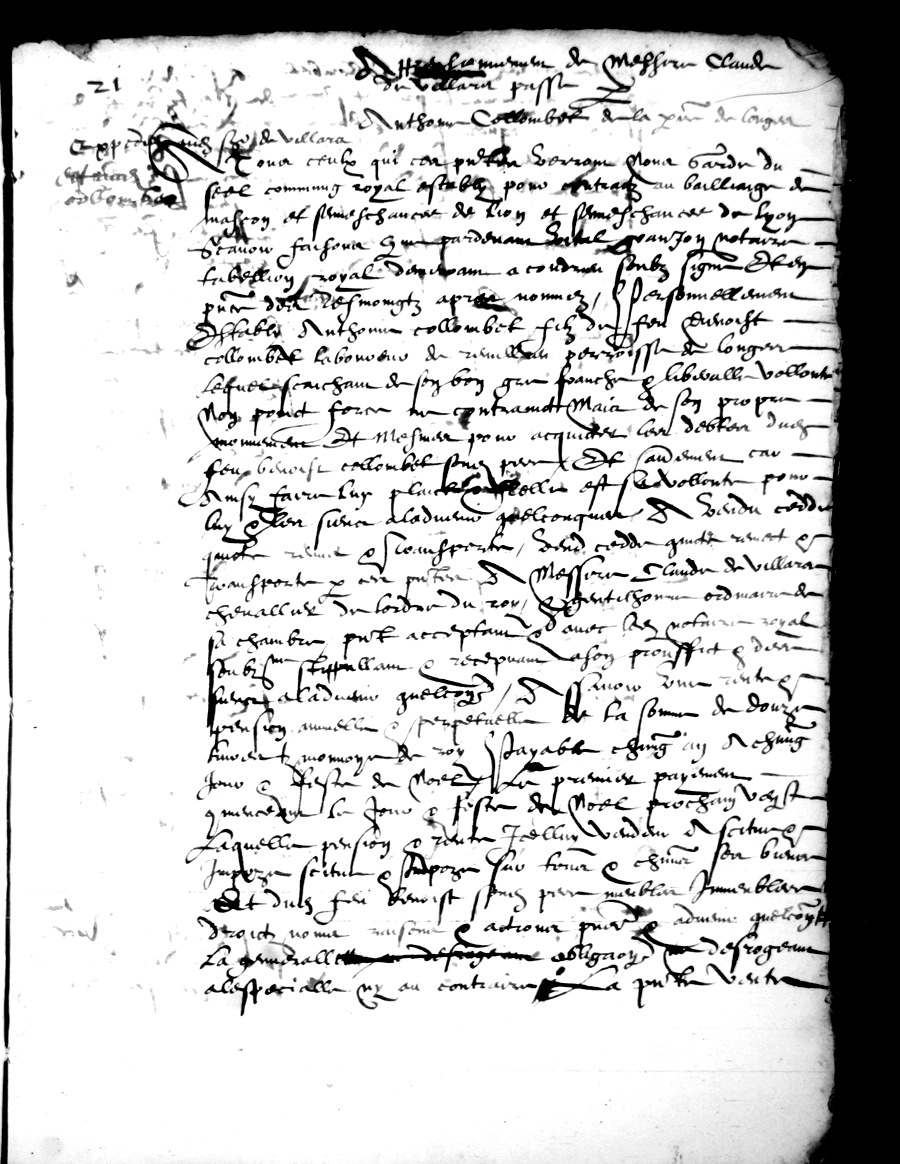 21
de Messire Claude
de Villars passe
Anthoine Collombet de la p̃re de longes
Expedie aud sr de Villars
A Tous ceulx qui ces p̃ntes verront Nous Garde du
seel commung royal estably pour contractz au bailliaige de
mascon et seneschaucee de lion et seneschaucee de lyon
Scavoir faisons Que pardevant notaire
tabellion royal demeurant a coudrieu soubz signe Et en
p̃nce des Tesmoingtz apres nommez / Personnellement
Estably Anthoine collombet filz de feu Benoist
collombet laboureur de perroisse de longes
Lequel scaichant de son bon gre franche & liberalle vollonte
Non poinct force ne contrainct Mais de son propre
mouvement Et Mesmes pour acquicter les debtes dudict
feu benoist collombet sond pere Et car
Ainsy faire luy plaict est sa vollonte pour
luy & les siens aladvenir quelconques / A vendu cedde
quicte remis & Transporte / vend cedde quicte remet &
Transporte p ces p̃ntes A Messire Claude de Villars
chevallier de lordre du roy / & gentilhomme ordinaire de
sa chambre p̃nt acceptant & avec led notaire royal
soubzne stipullant & recepvant a son prouffict & des
siens aladvenir quelcõqs / Assavoir une rente &
pension annuelle & perpetuelle de la somme de douze
livres t monnoye de roy / payable chũng an A chũng
Jour & feste de Noel / Le premier payement
qmencent le Jour & feste de Noel prochain venant
Laquelle pension & rente Icelluy vendeur A scitue &
Impoze scitue & Impoze sur tous & chũns ses biens
Et dud feu Benoist sond pere meubles Immeubles
droictz noms raisons & actions p̃ns & advenir quelcõqs
La generalle obligaõn ne desrogeant
alespecialle ny au contraire / La p̃nte vente